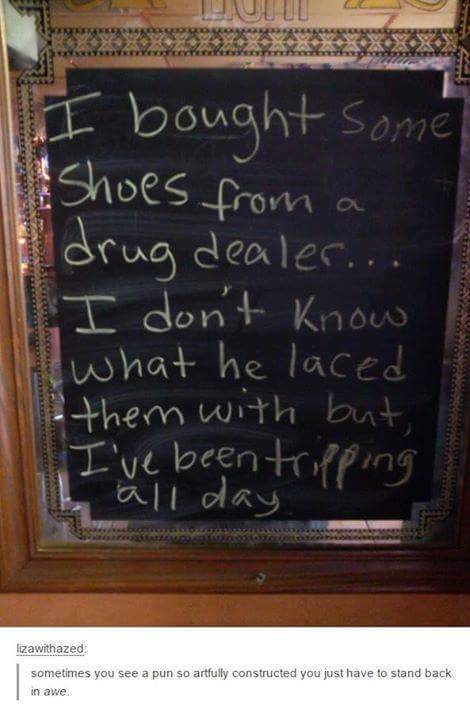 I bought some
shoes from a
drug dealer...
I don't know
what he laced
them with but,
I've been tripping
all day
lizawithazed:
sometimes you see a pun so artfully constructed you just have to stand back
in awe.